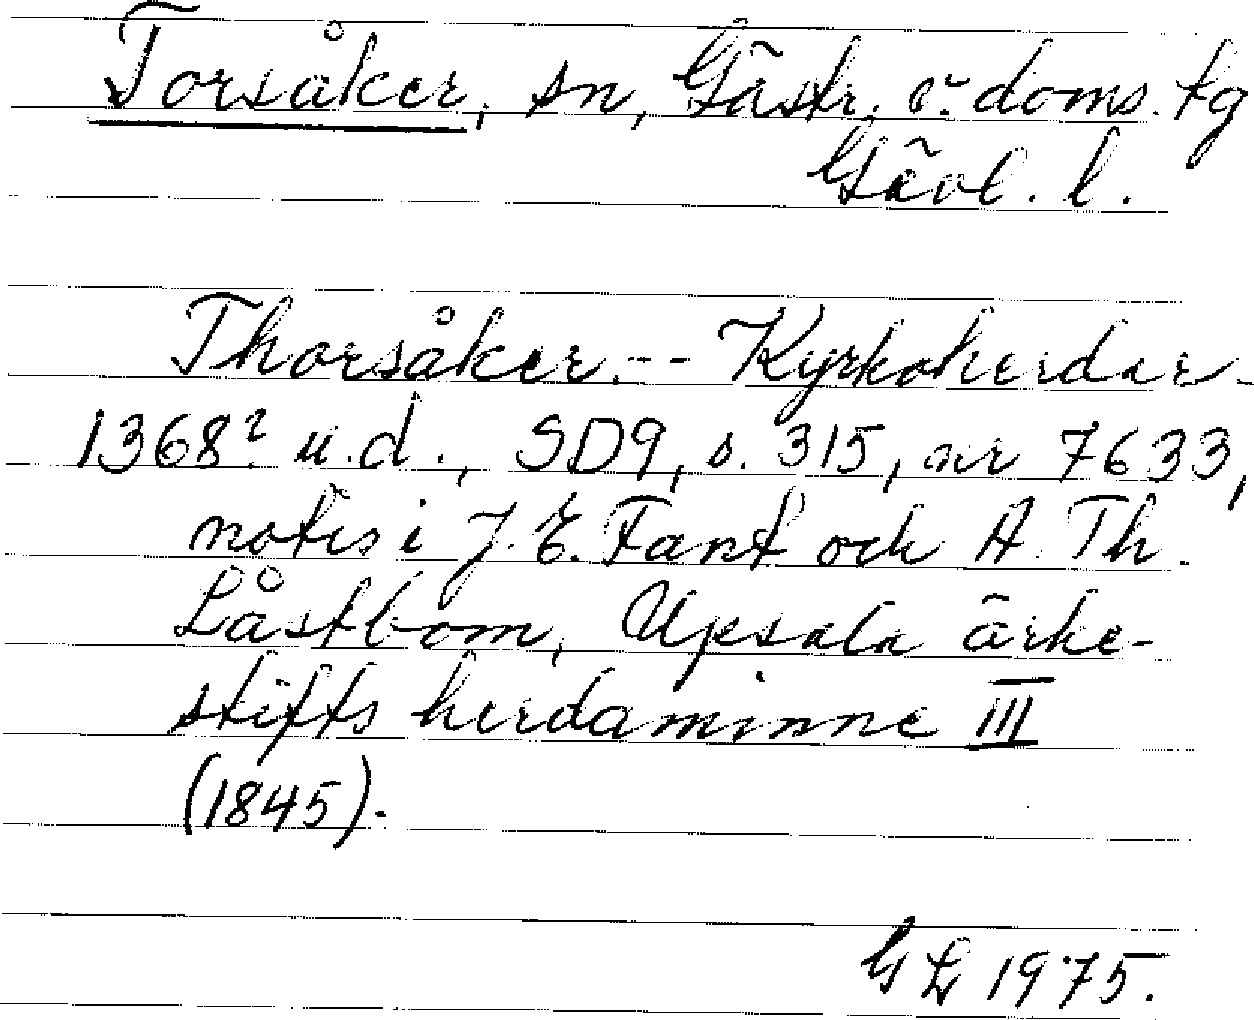 Torsåker, sn, Gästr. v. doms. tg
Gävl. l.
Thorsåker. -- Kyrkoherdar -
1368? u.d., SD9, s. 315, nr 7633,
notis i J. E. Fant och A. Th.
Låstbom, Upsala ärke-
stifts herdaminne III
(1845).
1975.